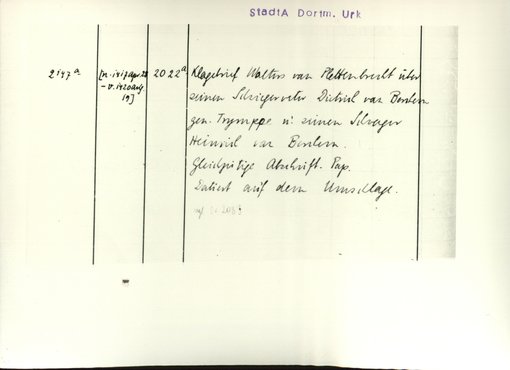 StadtA Dortm. Urk
2147a
[n. 1417 Apr. 28
- v. 1420 Aug.
19]
2022a
Klagebrief Walters van Plettenbracht über
seinen Schwiegervater Dietrich van Berchem
gen. Trymppe u. seinen Schwager
Heinrich van Berchem.
Gleichzeitige Abschrift. Pap.
Datiert auf dem Umschlage.